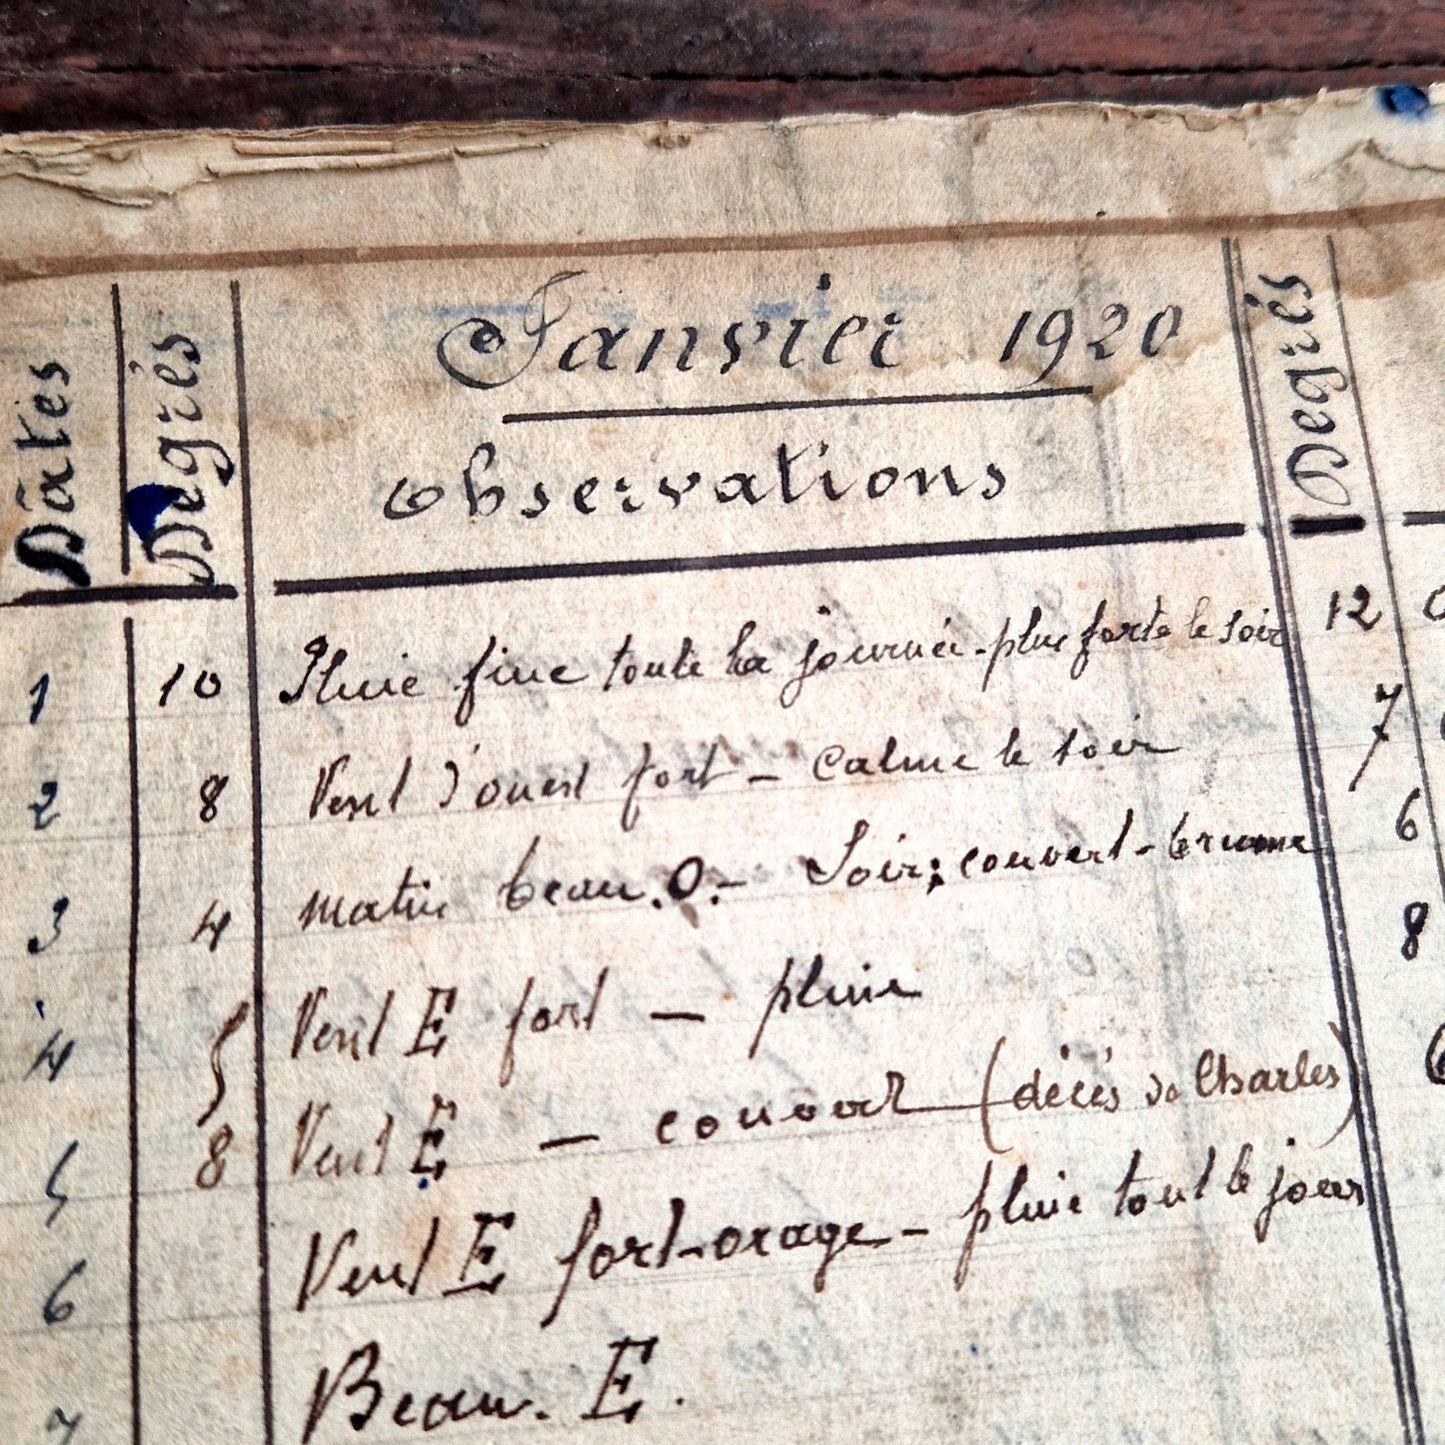 Janvier 1920
Dates Degrés Observations Degrés
1 10 Pluie fine toute la journée - plus forte le soir 12
2 8 Vent d'ouest fort - Calme le soir 7
3 4 Matin beau. O. - Soir; couvert - brume 6
4 5 Vent E fort - pluie 8
5 8 Vent E - couvert (décès de Charles) 6
6 Vent E fort - orage - pluie tout le jour
7 Beau. E.